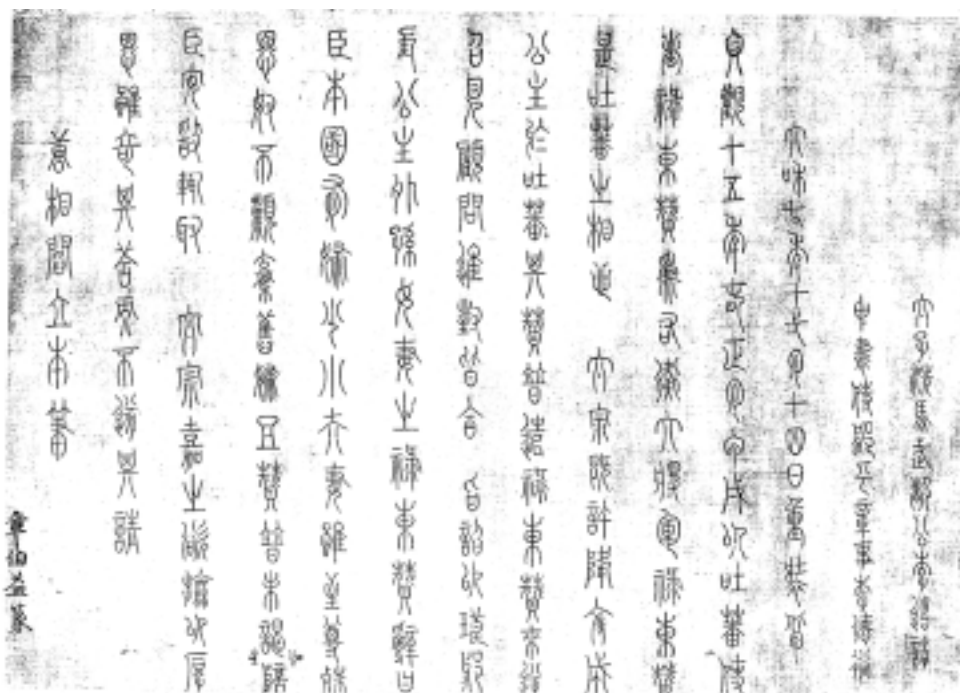 太子洗馬武都公李道誌
中書侍郎平章事李德裕
大和七年十一月十四日重裝背
貞觀十五年春正月甲戌以吐蕃使
者祿東贊爲右衛大將軍祿東贊
是吐蕃之相也 太宗既許降文成
公主於吐蕃其贊普遣祿東贊來逆
召見顧問進對皆合 旨詔以琅邪
長公主外孫女妻之祿東贊辭曰
臣本國有婦少小夫妻雖至尊殊
恩奴不願棄舊婦且贊普未謁陪
臣安敢輒取 太宗嘉之欲撫以厚
恩雖奇其答而不遂其請
唐相閻立本筆
章伯益篆